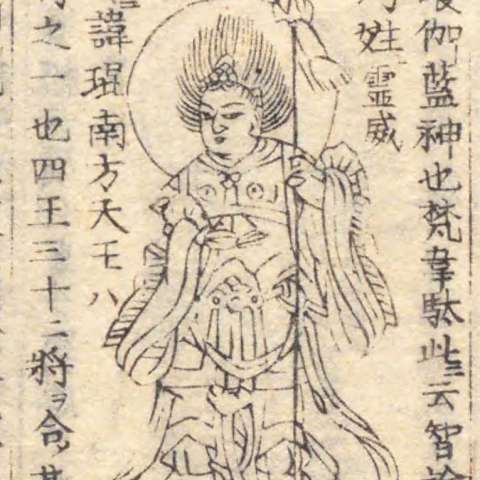 伽藍神也梵韋駄此ニ云智
姓靈威
諱琨南方天王八
之一也四王三十二將ヲ合